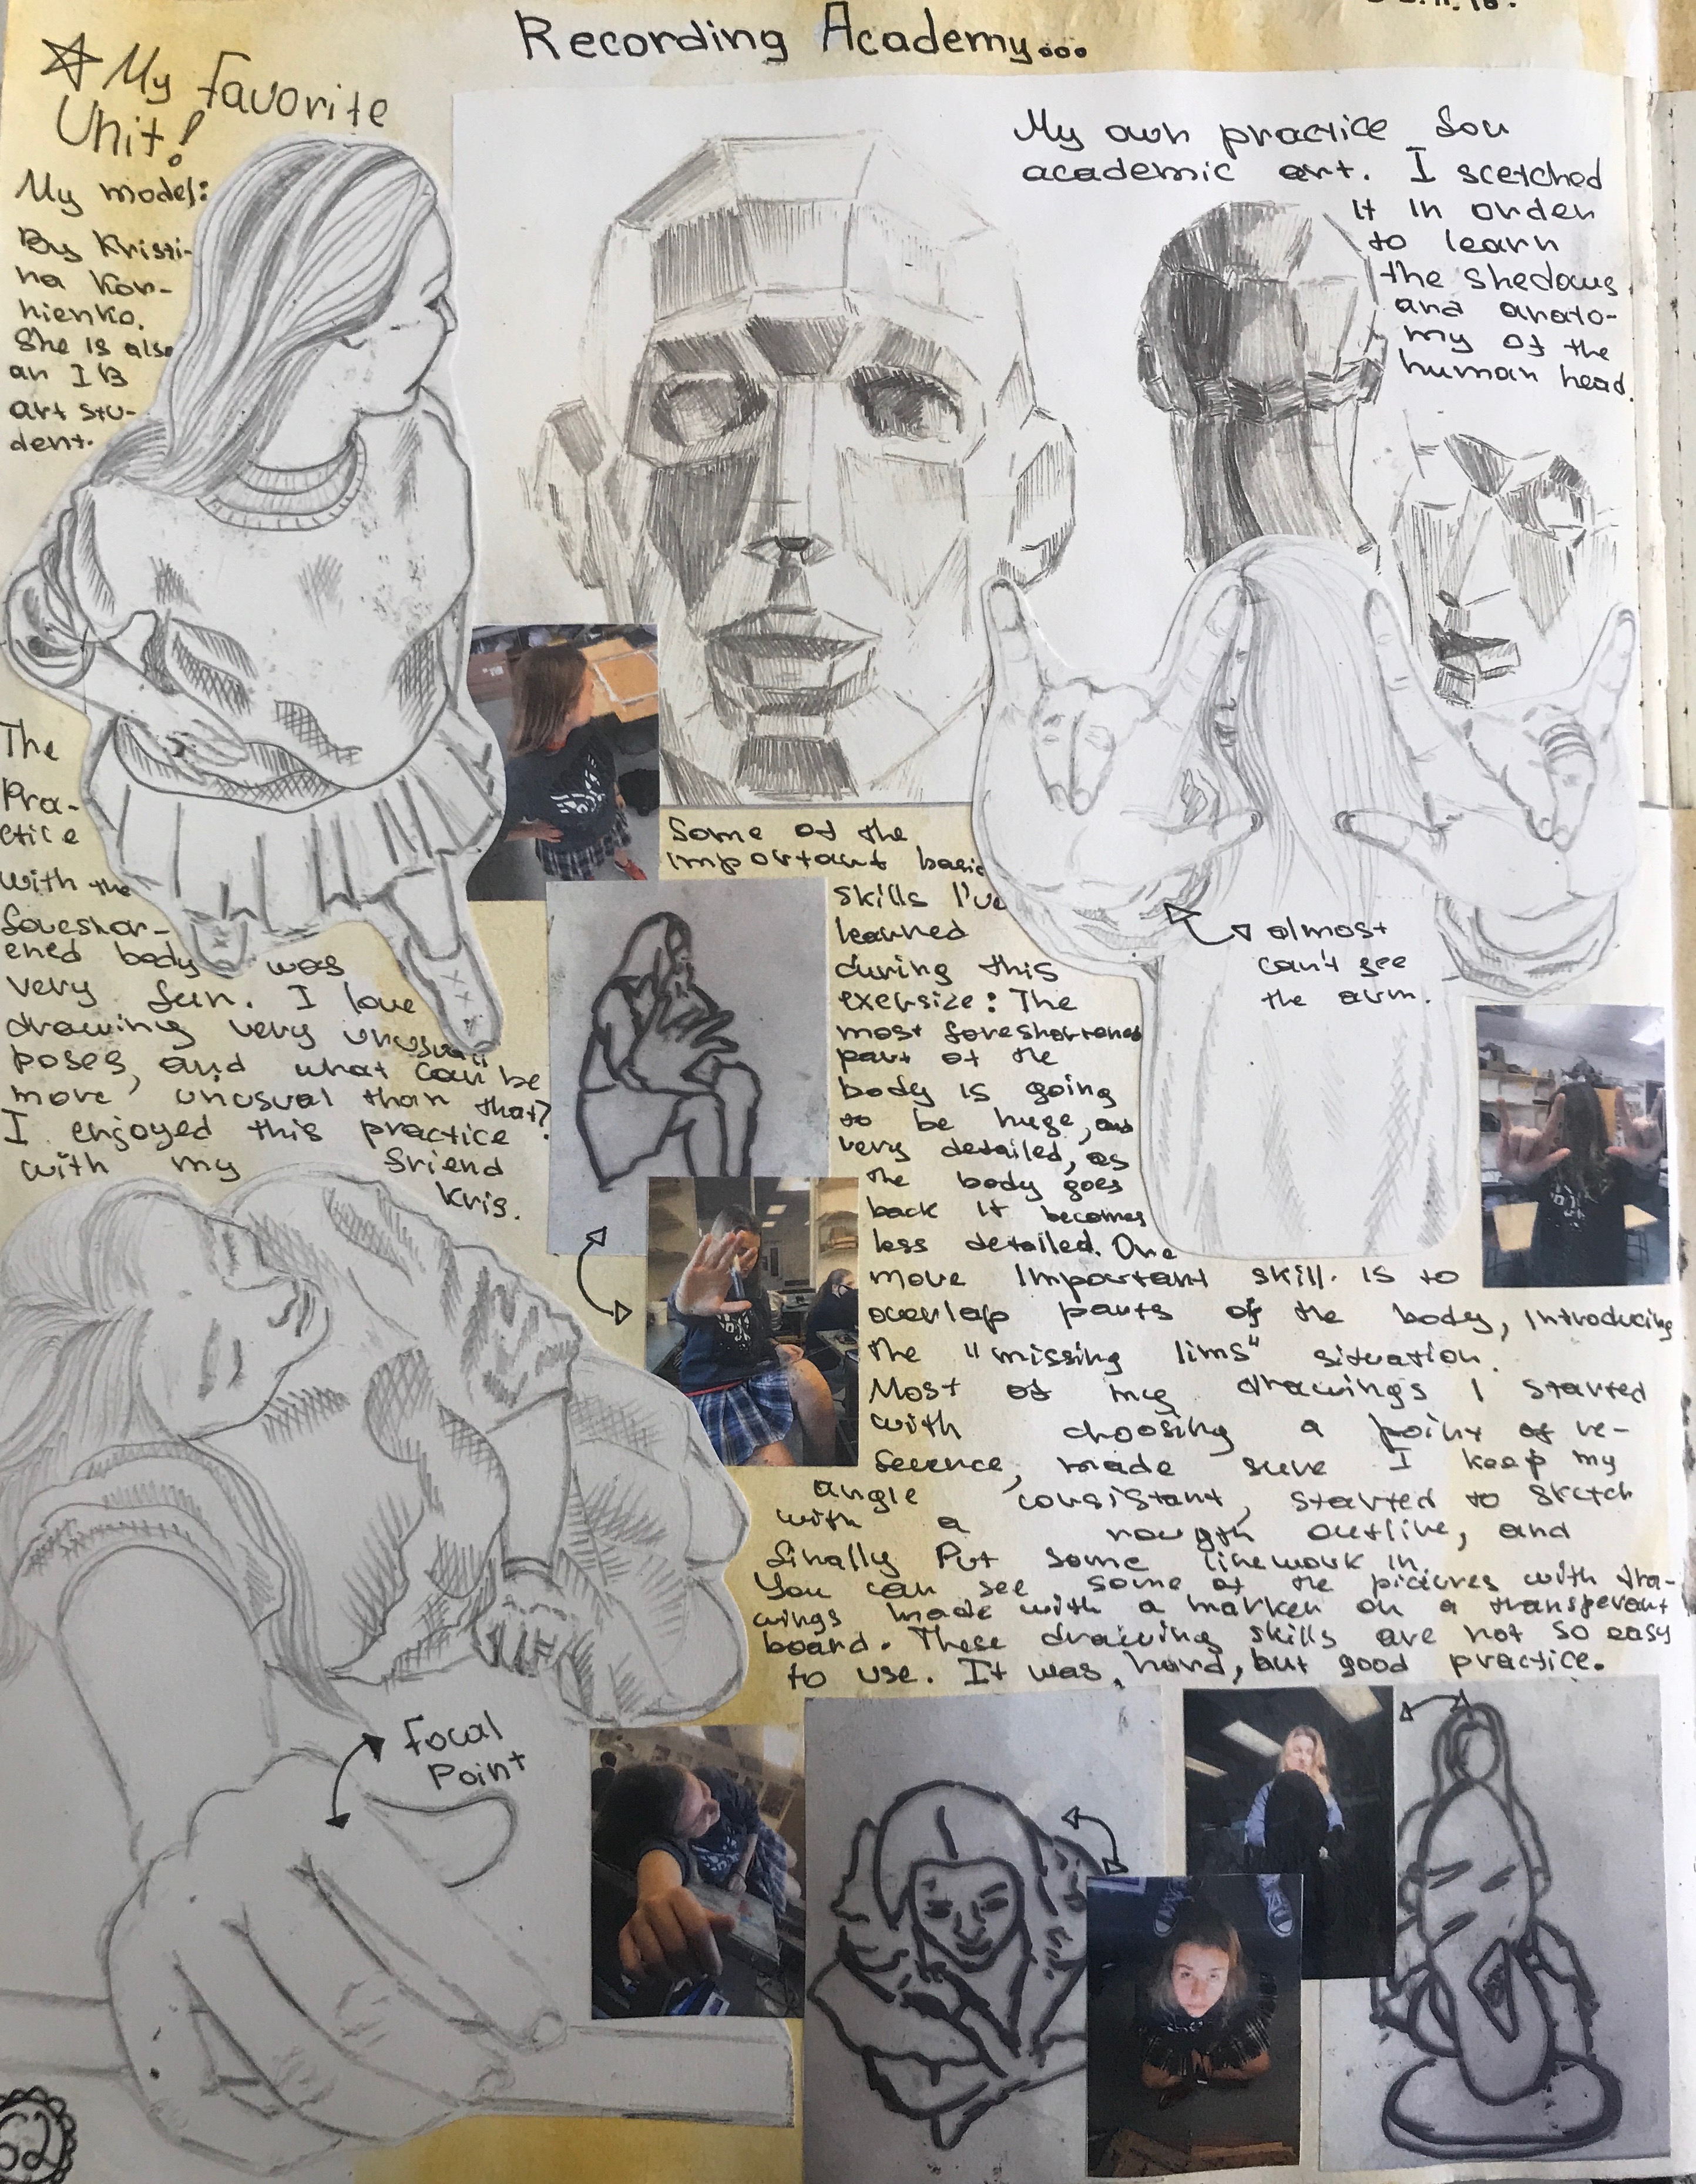 Recording Academy...
My Favorite
Unit!
My model:
By Kristi-
na Kor-
nienko.
She is also
an IB
art stu-
dent.
My own practice for
academic art. I scetched
it in order
to learn
the shedows
and anato-
my of the
human head.
The
Pra-
ctice
with the
foreshor-
ened body was
very fun. I love
drawing very unusuall
poses, and what can be
more unusual than that?
I enjoyed this practice
with my friend
Kris.
Some of the
important basic
skills I've
learned
during this
exersize: The
most foreshortened
part of the
body is going
to be huge, and
very detailed, as
the body goes
back it becomes
less detailed. One
more important skill is to
overlap parts of the body, introducing
the "missing lims" situation.
Most of my drawings I started
with choosing a point of re-
ference, made sure I keep my
angle consistant, started to sketch
with a rough outline, and
finally put some linework in.
You can see some of the pictures with dra-
wings made with a marker on a transperant
board. These drawing skills are not so easy
to use. It was hard, but good practice.
almost
can't see
the arm.
Focal
Point
62